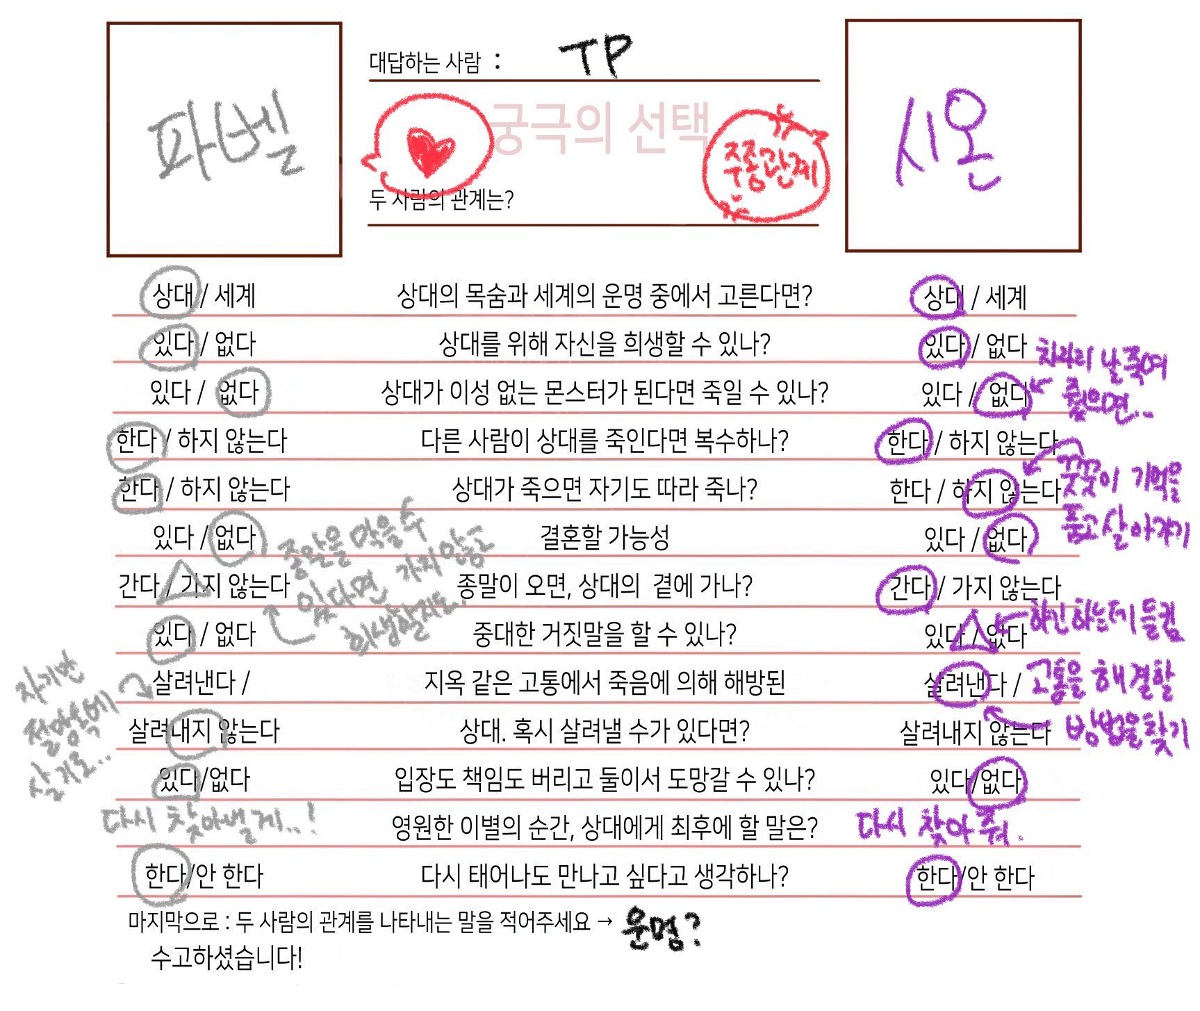 대답하는 사람 : TP
파벨
궁극의 선택
주종관계
시온
두 사람의 관계는?
상대 / 세계 상대의 목숨과 세계의 운명 중에서 고른다면? 상대 / 세계
있다 / 없다 상대를 위해 자신을 희생할 수 있나? 있다 / 없다
차라리 날 죽여
줬으면..
있다 / 없다 상대가 이성 없는 몬스터가 된다면 죽일 수 있나? 있다 / 없다
한다 / 하지 않는다 다른 사람이 상대를 죽인다면 복수하나? 한다 / 하지 않는다
한다 / 하지 않는다 상대가 죽으면 자기도 따라 죽나? 한다 / 하지 않는다
꿋꿋이 기억을
품고 살아가기
있다 / 없다 결혼할 가능성 있다 / 없다
종말을 막을 수
있다면, 가지 않고
희생할지도..
간다 / 가지 않는다 종말이 오면, 상대의 곁에 가나? 간다 / 가지 않는다
있다 / 없다 중대한 거짓말을 할 수 있나? 있다 / 없다
하긴 하는데 들킴
자기만
절망속에
살기로..
살려낸다 / 지옥 같은 고통에서 죽음에 의해 해방된 살려낸다 /
살려내지 않는다 상대. 혹시 살려낼 수가 있다면? 살려내지 않는다
고통을 해결할
방법을 찾기
있다/없다 입장도 책임도 버리고 둘이서 도망갈 수 있나? 있다/없다
다시 찾아낼게..! 영원한 이별의 순간, 상대에게 최후에 할 말은? 다시 찾아줘.
한다/안 한다 다시 태어나도 만나고 싶다고 생각하나? 한다/안 한다
마지막으로 : 두 사람의 관계를 나타내는 말을 적어주세요 → 운명?
수고하셨습니다!